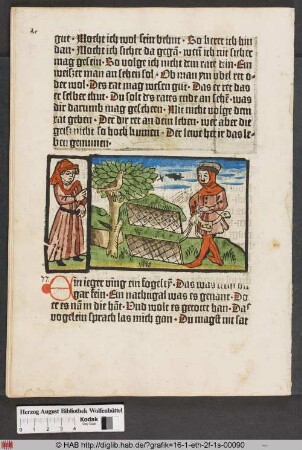 gut · Mocht ich wol sein behut · So keret ich hin
dan · Mocht ich sicher da gegan · wen ich nit sicher
mag gesein · So volge ich nicht dem rate din · Ein
weißer man an sehen sol · Ob man ym vbel rete
oder wol · Des rat mag wesen gut · Das er rat das
er selber thut · Du solt des rates ende an sehn · was
dir darumb mag geschehen · Nit nicht volge dem
rat geben · Der dir ret an dein leben · wie aber die
geiß nicht so hoch kumen · Der lewe het ir das le-
ben genumen ·
Ein ieger ving ein fogelein · Das was
gar fein · Ein nachtigal was es genant · Do
er es nam in die hant · Vnd wolt es getotet han · Das
vogelein sprach las mich gan · Du magst nit sat
Herzog August Bibliothek Wolfenbüttel
Kodak
0 1 2 3 4
© HAB http://diglib.hab.de/?grafik=16-1-eth-2f-1s-00090